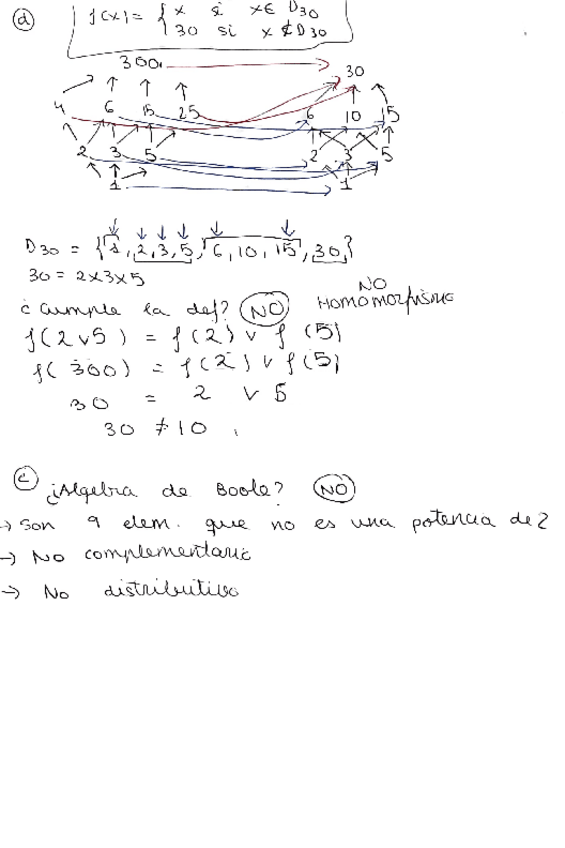 ⓓ f(x) = { x si x ∈ D30
30 si x ∉ D30
300 30
4 6 15 25 6 10 15
2 3 5 2 3 5
1 1
D30 = {1, 2, 3, 5, 6, 10, 15, 30}
30 = 2x3x5
¿Cumple la def? NO NO HOMOMORFISMO
f(2 v 5) = f(2) v f(5)
f(300) = f(2) v f(5)
30 = 2 v 5
30 ≠ 10
ⓔ ¿Algebra de Boole? NO
→ Son 9 elem. que no es una potencia de 2
→ No complementario
→ No distributivo